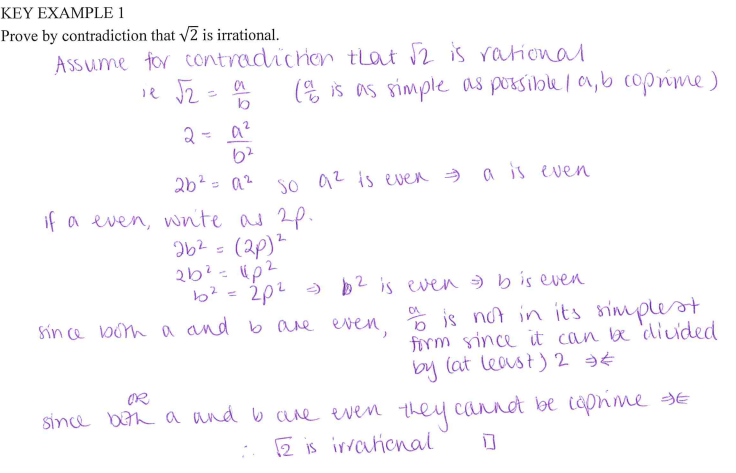 KEY EXAMPLE 1
Prove by contradiction that √2 is irrational.
Assume for contradiction that √2 is rational
ie √2 = a/b (a/b is as simple as possible / a, b coprime)
2 = a²/b²
2b² = a² so a² is even ⇒ a is even
if a even, write as 2p.
2b² = (2p)²
2b² = 4p²
b² = 2p² ⇒ b² is even ⇒ b is even
since both a and b are even, a/b is not in its simplest
form since it can be divided
by (at least) 2 ⇒⇐
OR
since both a and b are even they cannot be coprime ⇒⇐
∴ √2 is irrational □